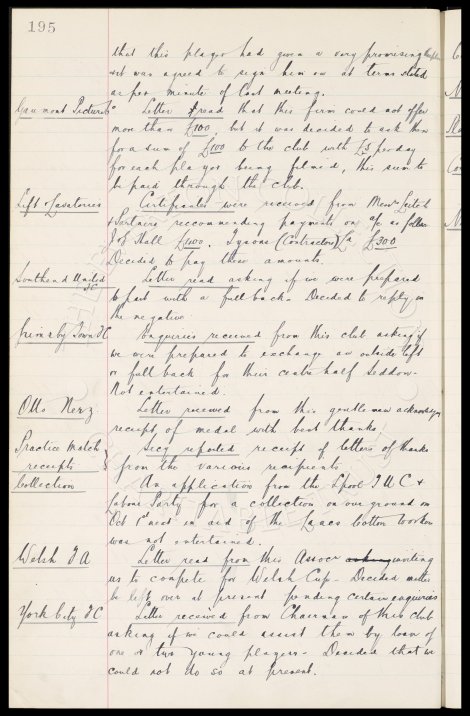 195
that this player had given a very promising
& it was agreed to sign him on at terms stated
as per minute of last meeting.
Gaumont Pictures Letter read that this firm could not offer
more than £100, but it was decided to ask them
for a sum of £100 to the club with £3 per day
for each player being filmed, this sum to
be paid through the club.
Lift & Lavatories Certificates were received from Messrs Leitch
& Partners reccommending payments on a/c as follows
J & Hall £400. Tysons (Contractors) Ld £300
Decided to pay these amounts.
Southend United FC Letter read asking if we were prepared
to part with a full back. Decided to reply in
the negative.
Grimsby Town FC Enqueries received from this club asking if
we were prepared to exchange an outside left
or full back for their centre half Seddon.
Not entertained.
Otto Nerz. Letter received from this gentleman acknowledging
receipt of medal with best thanks.
Practice Match receipts Secy reported receipt of letters of thanks
from the various recipients
Collection An application from the Lpool T U C &
Labour Party for a collection on our ground on
Oct 1st next in aid of the Lancs Cotton Workers
was not entertained.
Welsh F A Letter read from this Assocn asking inviting
us to compete for Welsh Cup. Decided matter
be left over at present pending certain enqueries
York City FC Letter received from Chairman of this club
asking if we could assist them by loan of
one or two young players. Decided that we
could not do so at present.